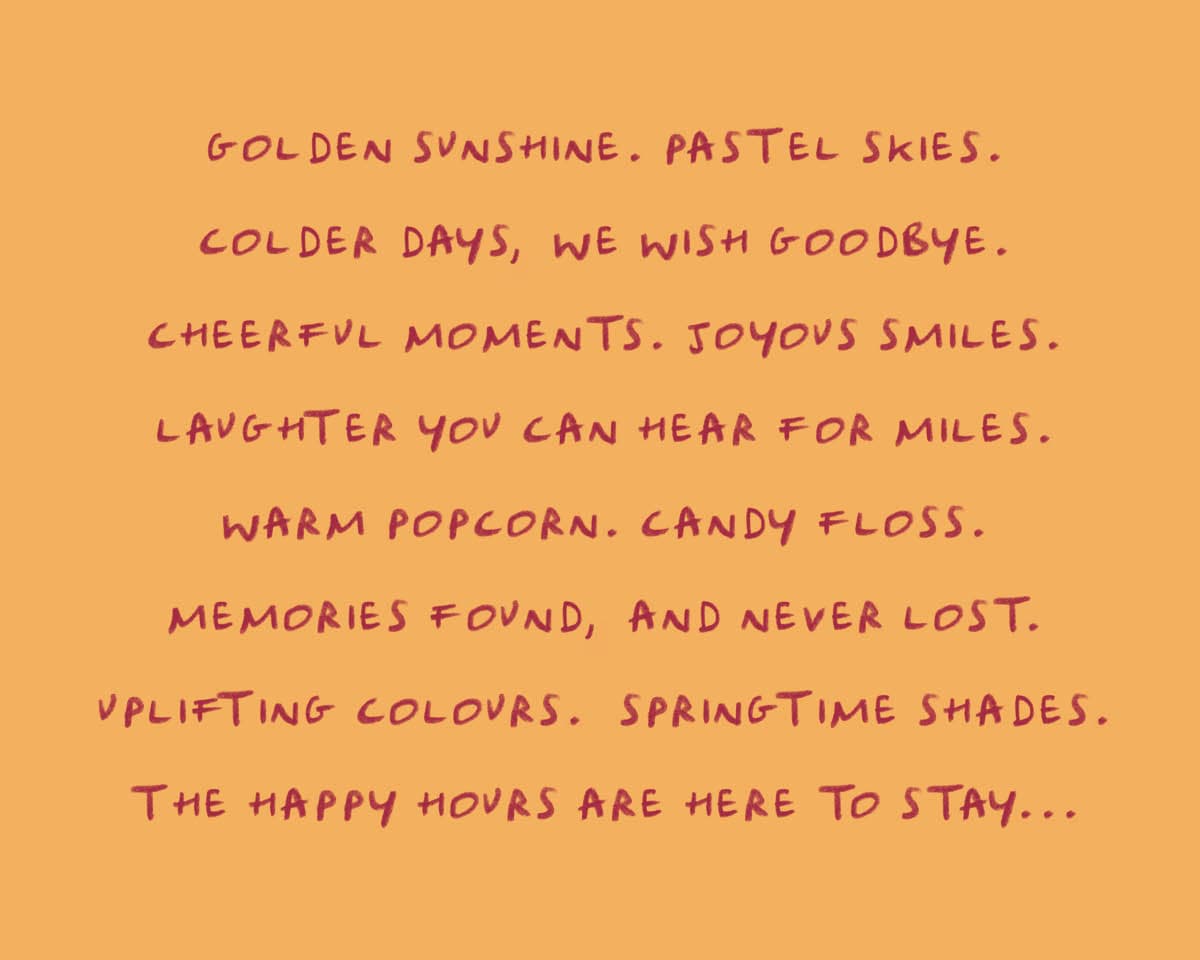 GOLDEN SUNSHINE. PASTEL SKIES.
COLDER DAYS, WE WISH GOODBYE.
CHEERFUL MOMENTS. JOYOUS SMILES.
LAUGHTER YOU CAN HEAR FOR MILES.
WARM POPCORN. CANDY FLOSS.
MEMORIES FOUND, AND NEVER LOST.
UPLIFTING COLOURS. SPRINGTIME SHADES.
THE HAPPY HOURS ARE HERE TO STAY...